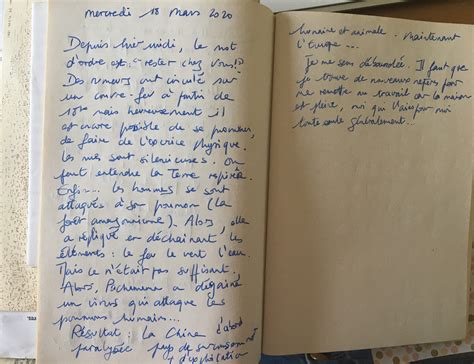 mercredi 18 mars 2020
Depuis hier midi, le mot
d'ordre est "rester chez vous!"
Des rumeurs ont circulé sur
un couvre-feu à partir de
18h mais heureusement il
est encore possible de se promener,
de faire de l'exercice physique.
les rues sont silencieuses. On
peut entendre la Terre respirer.
Enfin... les hommes se sont
attaqués à son poumon (la
forêt amazonienne). Alors, elle
a répliqué en déchaînant les
éléments: le feu le vent l'eau.
Mais ce n'était pas suffisant.
Alors, Pachamama a dégainé
un virus qui attaque les
poumons humains...
Résultat: la Chine d'abord
paralysée pays de surconsommation
d'exploitation
humaine et animale. Maintenant
l'Europe...
Je me sens débordée. Il faut que
je trouve de nouveaux repères pour
me remettre au travail car la maison
est pleine, moi qui l'ai pour moi
toute seule généralement...